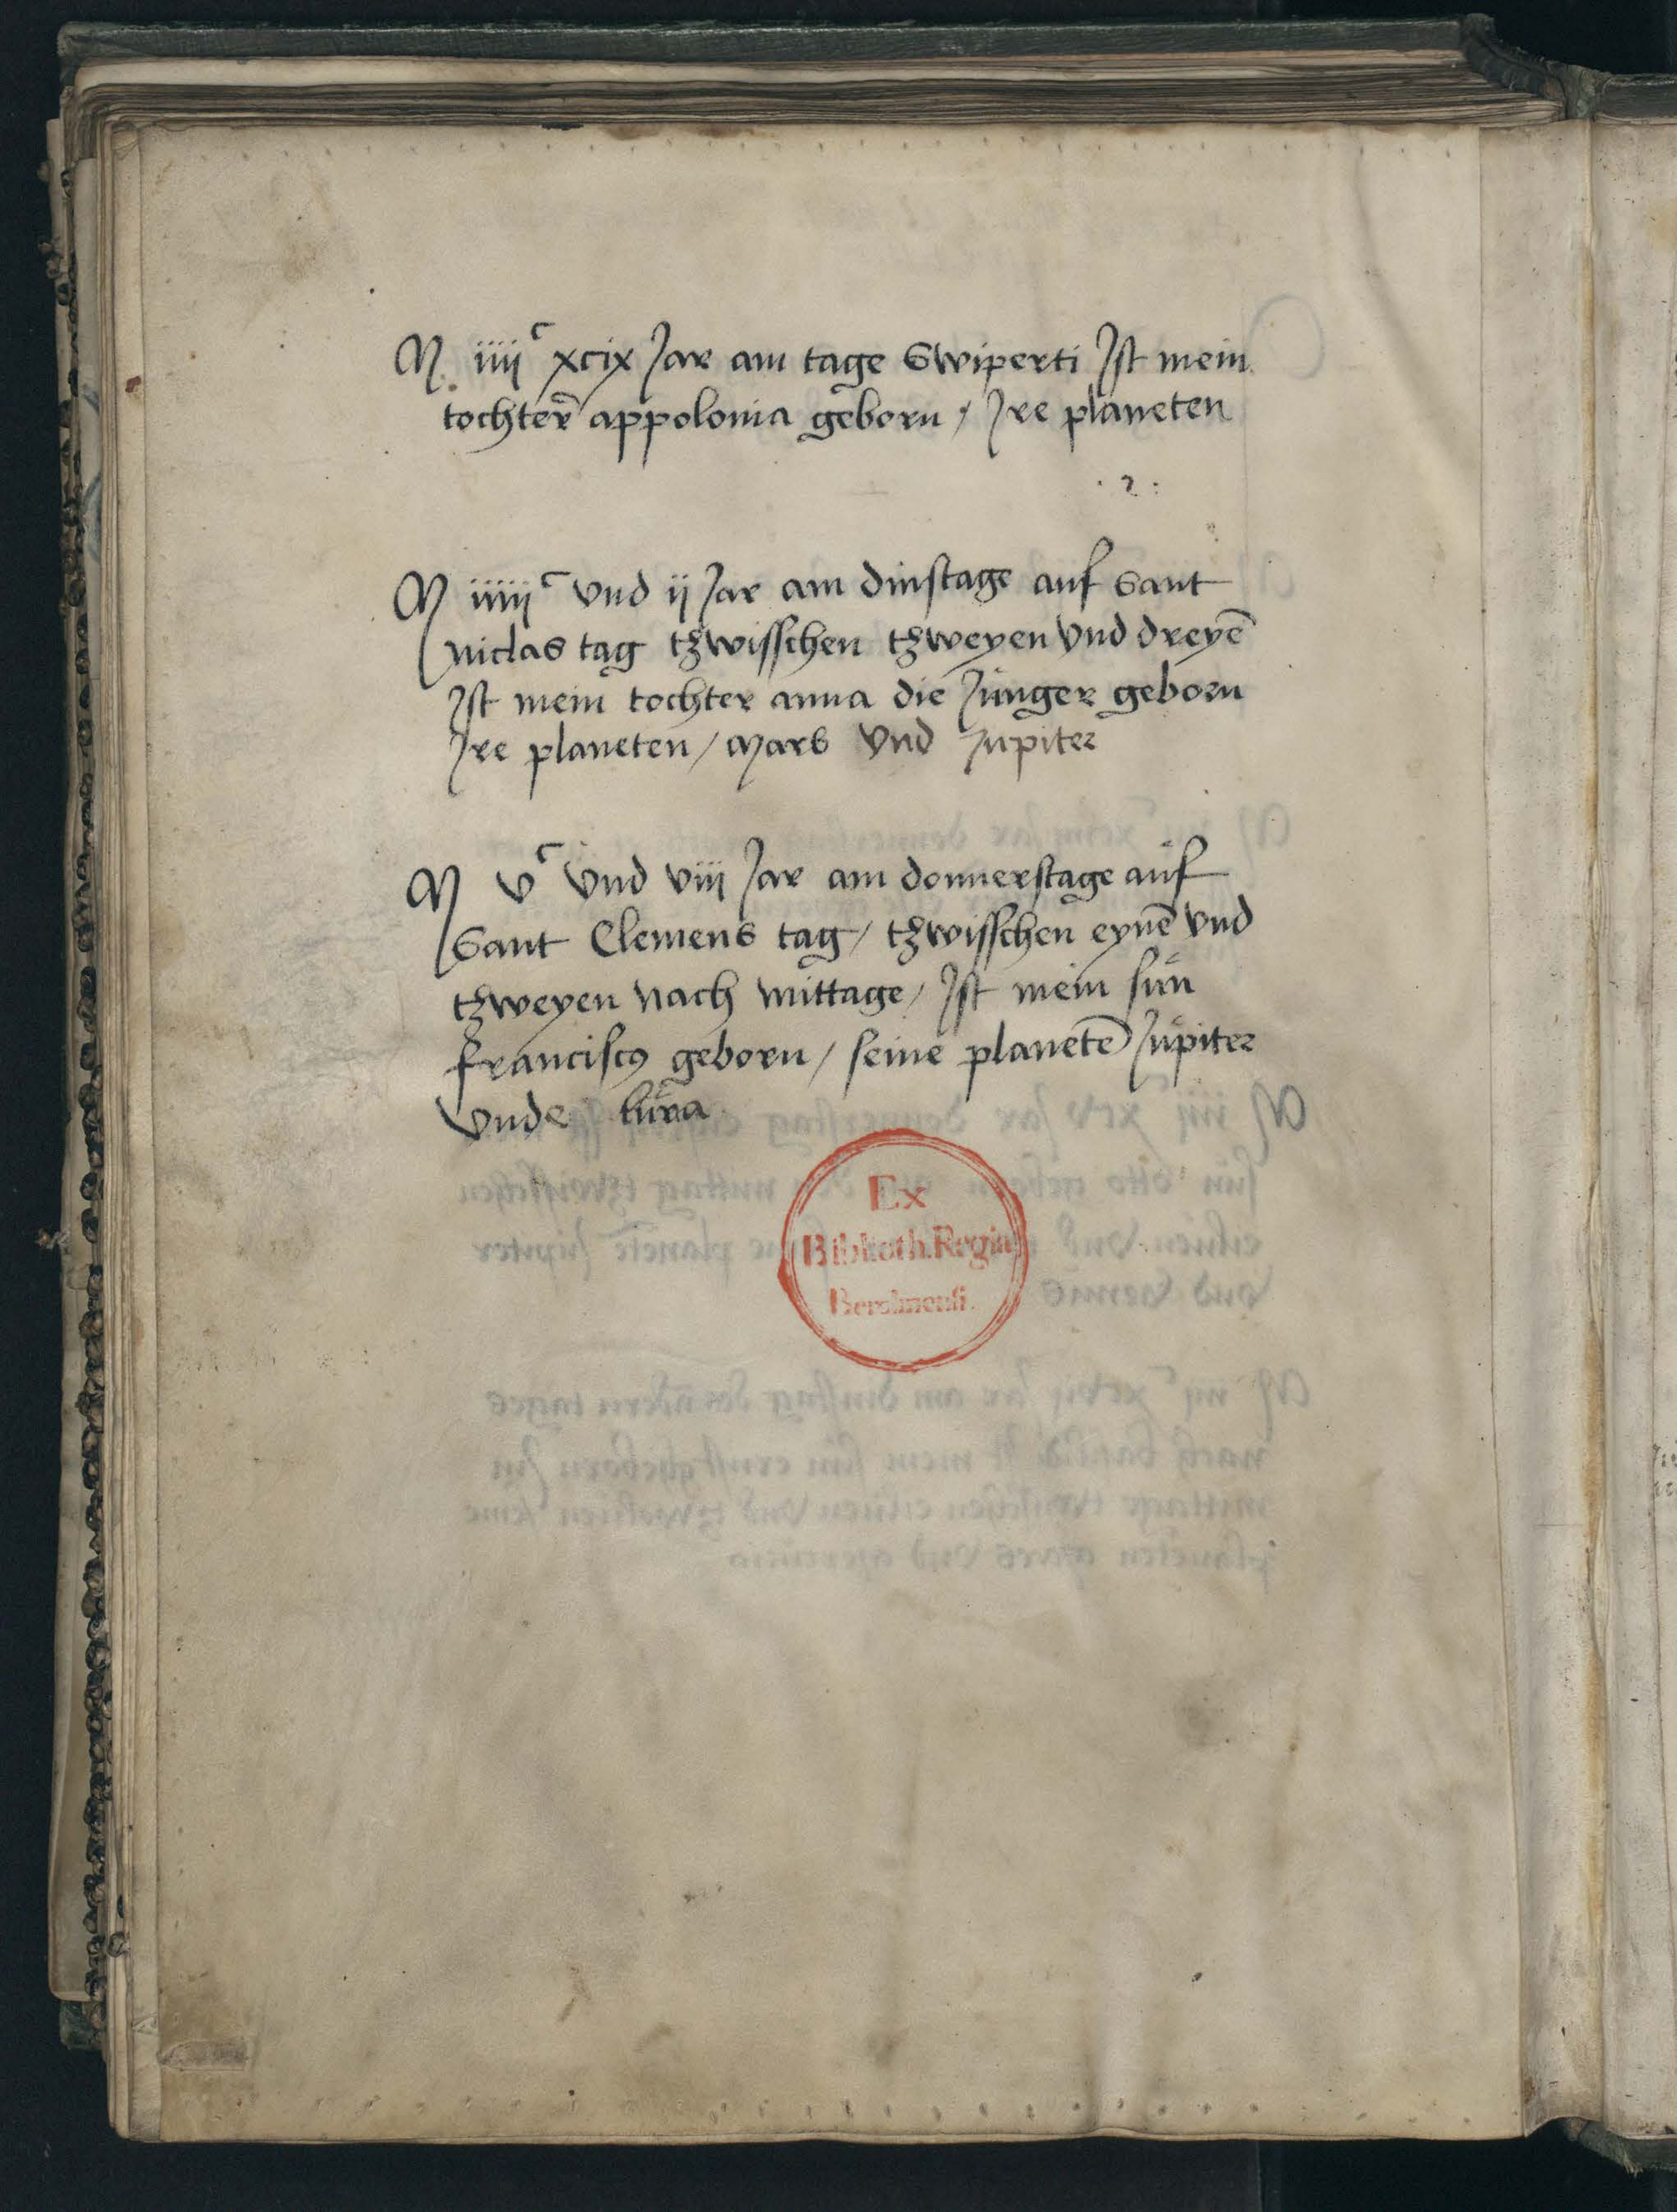 M iiiiᶜ xcix Jar am tage Swiperti Ist mein
tochter appolonia geborn / Ire planeten
. 2 :
M iiiiiᶜ vnd ij Jar am dinstage auf Sant
niclas tag tzwisschen tzweyen vnd dreyē
Ist mein tochter anna die Junger geborn
Ire planeten / Mars vnd Jupiter
M vᶜ vnd viii Jar am donnerstage auf
Sant Clemens tag / tzwisschen eynē vnd
tzweyen nach mittage / Ist mein sun
franciscꝯ geborn / seine planetē Jupiter
vnde
Ex
Biblioth. Regia
Berolinensi.